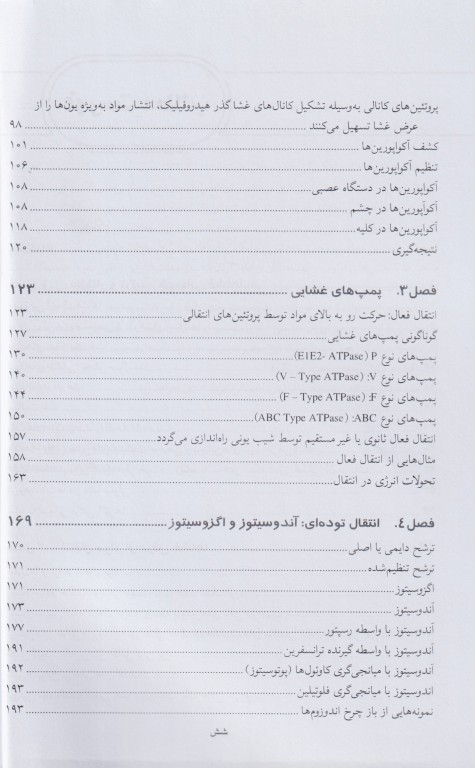 پروتئین‌های کانالی به‌وسیله تشکیل کانال‌های غشا گذر هیدروفیلیک، انتشار مواد به‌ویژه یون‌ها را از
عرض غشا تسهیل می‌کنند ........ ۹۸
کشف آکواپورین‌ها ........ ۱۰۱
تنظیم آکواپورین‌ها ........ ۱۰۶
آکواپورین‌ها در دستگاه عصبی ........ ۱۰۸
آکواپورین‌ها در چشم ........ ۱۰۸
آکواپورین‌ها در کلیه ........ ۱۱۸
نتیجه‌گیری ........ ۱۲۰
فصل ۳. پمپ‌های غشایی ........ ۱۲۳
انتقال فعال: حرکت رو به بالای مواد توسط پروتئین‌های انتقالی ........ ۱۲۳
گوناگونی پمپ‌های غشایی ........ ۱۲۷
پمپ‌های نوع P (E1E2- ATPase) ........ ۱۳۰
پمپ‌های نوع V: (V – Type ATPase) ........ ۱۴۰
پمپ‌های نوع F: (F – Type ATPase) ........ ۱۴۴
پمپ‌های نوع ABC: (ABC Type ATPase) ........ ۱۵۰
انتقال فعال ثانوی یا غیر مستقیم توسط شیب یونی راه‌اندازی می‌گردد ........ ۱۵۷
مثال‌هایی از انتقال فعال ........ ۱۵۸
تحولات انرژی در انتقال ........ ۱۶۳
فصل ۴. انتقال توده‌ای: آندوسیتوز و اگزوسیتوز ........ ۱۶۹
ترشح دایمی یا اصلی ........ ۱۷۰
ترشح تنظیم‌شده ........ ۱۷۱
اگزوسیتوز ........ ۱۷۱
آندوسیتوز ........ ۱۷۳
آندوسیتوز با واسطه رسپتور ........ ۱۷۷
آندوسیتوز با واسطه گیرنده ترانسفرین ........ ۱۹۱
آندوسیتوز با میانجی‌گری کاوئول‌ها (پوتوسیتوز) ........ ۱۹۲
اندوسیتوز با میانجی‌گری فلوتیلین ........ ۱۹۳
نمونه‌هایی از باز چرخ اندوزوم‌ها ........ ۱۹۳
شش